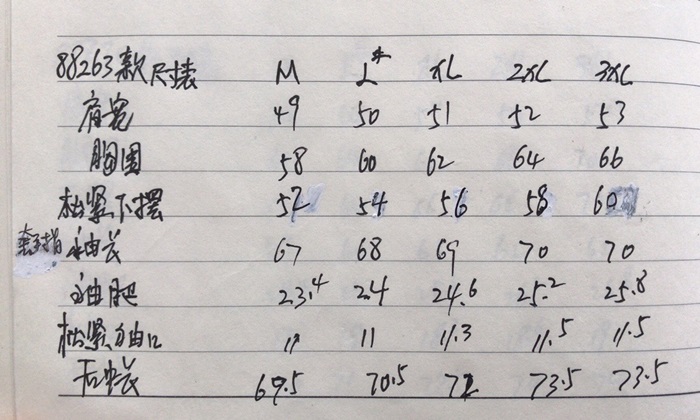 88263款尺捸 M L* XL 2XL 3XL
肩宽 49 50 51 52 53
胸围 58 60 62 64 66
松紧下摆 52 54 56 58 60
袖长 67 68 69 70 70
袖肥 23.4 24 24.6 25.2 25.8
松紧袖口 11 11 11.3 11.5 11.5
后中长 69.5 70.5 72 73.5 73.5